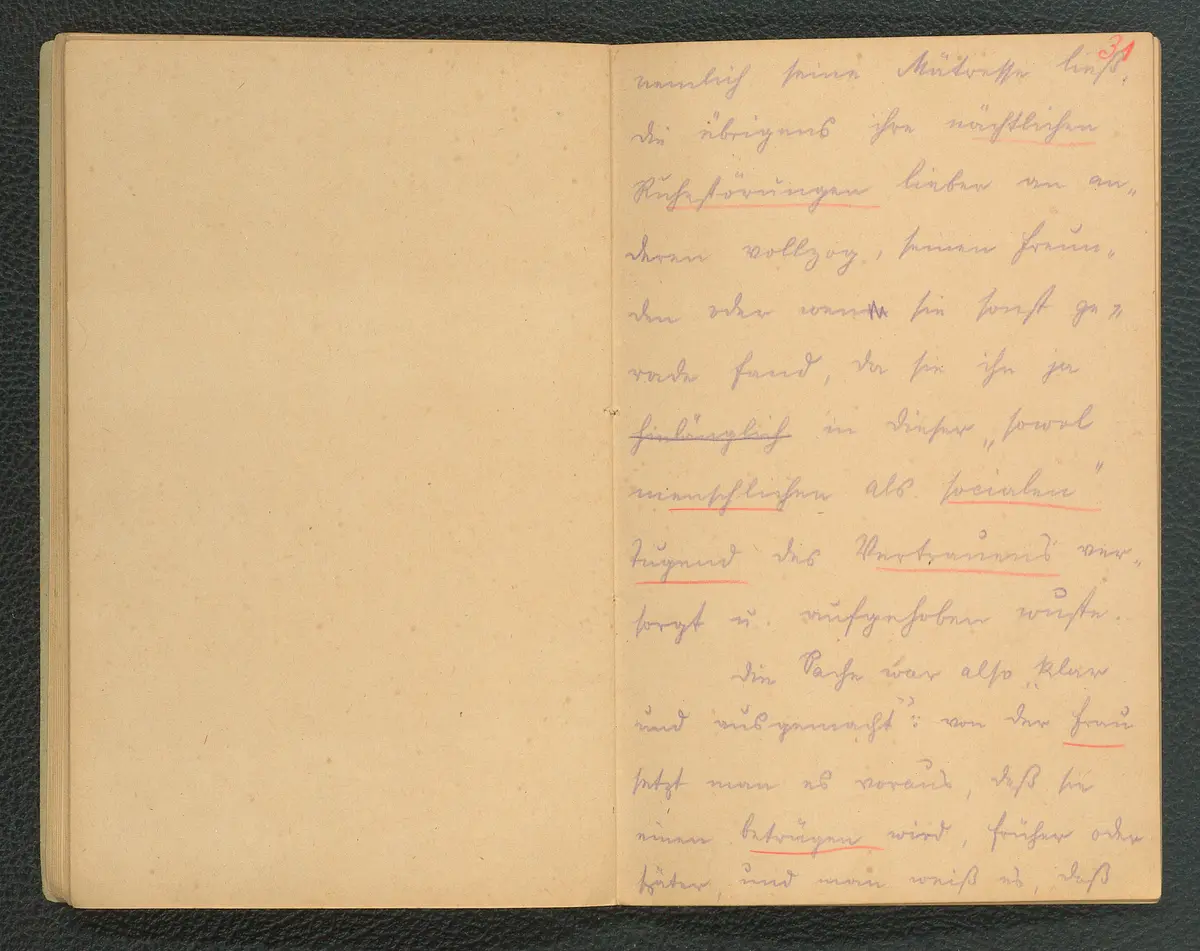 31
nemlich seine Mätresse ließ,
die übrigens ihre nächtlichen
Ruhestörungen lieber an an„
deren vollzog, seinen Freun„
den oder wen sie sonst ge„
rade fand, da sie ihn ja
hinlänglich in dieser „sowol
menschlichen als socialen“
Tugend des Vertrauens ver„
sorgt u. aufgehoben wuste.
Die Sache war also „klar
und ausgemacht“: von der Frau
setzt man es voraus, daß sie
einen betrügen wird, früher oder
später, und man weiß es, daß